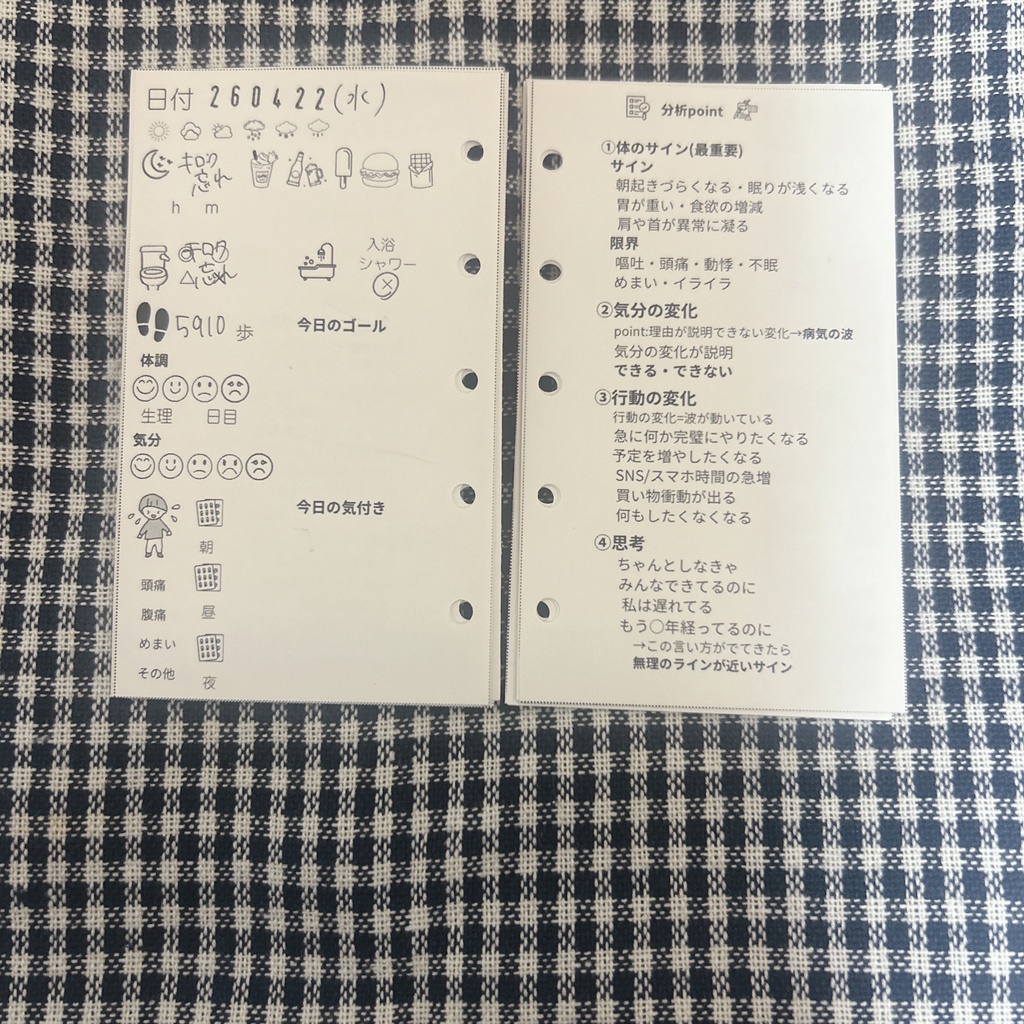 日付 260422(水)
キロク
忘れ
h m
キロク
忘れ
入浴
シャワー
5910 歩
今日のゴール
体調
生理 日目
気分
今日の気付き
朝
頭痛
腹痛
昼
めまい
その他
夜
分析point
①体のサイン(最重要)
サイン
朝起きづらくなる・眠りが浅くなる
胃が重い・食欲の増減
肩や首が異常に凝る
限界
嘔吐・頭痛・動悸・不眠
めまい・イライラ
②気分の変化
point:理由が説明できない変化→病気の波
気分の変化が説明
できる・できない
③行動の変化
行動の変化=波が動いている
急に何か完璧にやりたくなる
予定を増やしたくなる
SNS/スマホ時間の急増
買い物衝動が出る
何もしたくなくなる
④思考
ちゃんとしなきゃ
みんなできてるのに
私は遅れてる
もう〇年経ってるのに
→この言い方がでてきたら
無理のラインが近いサイン